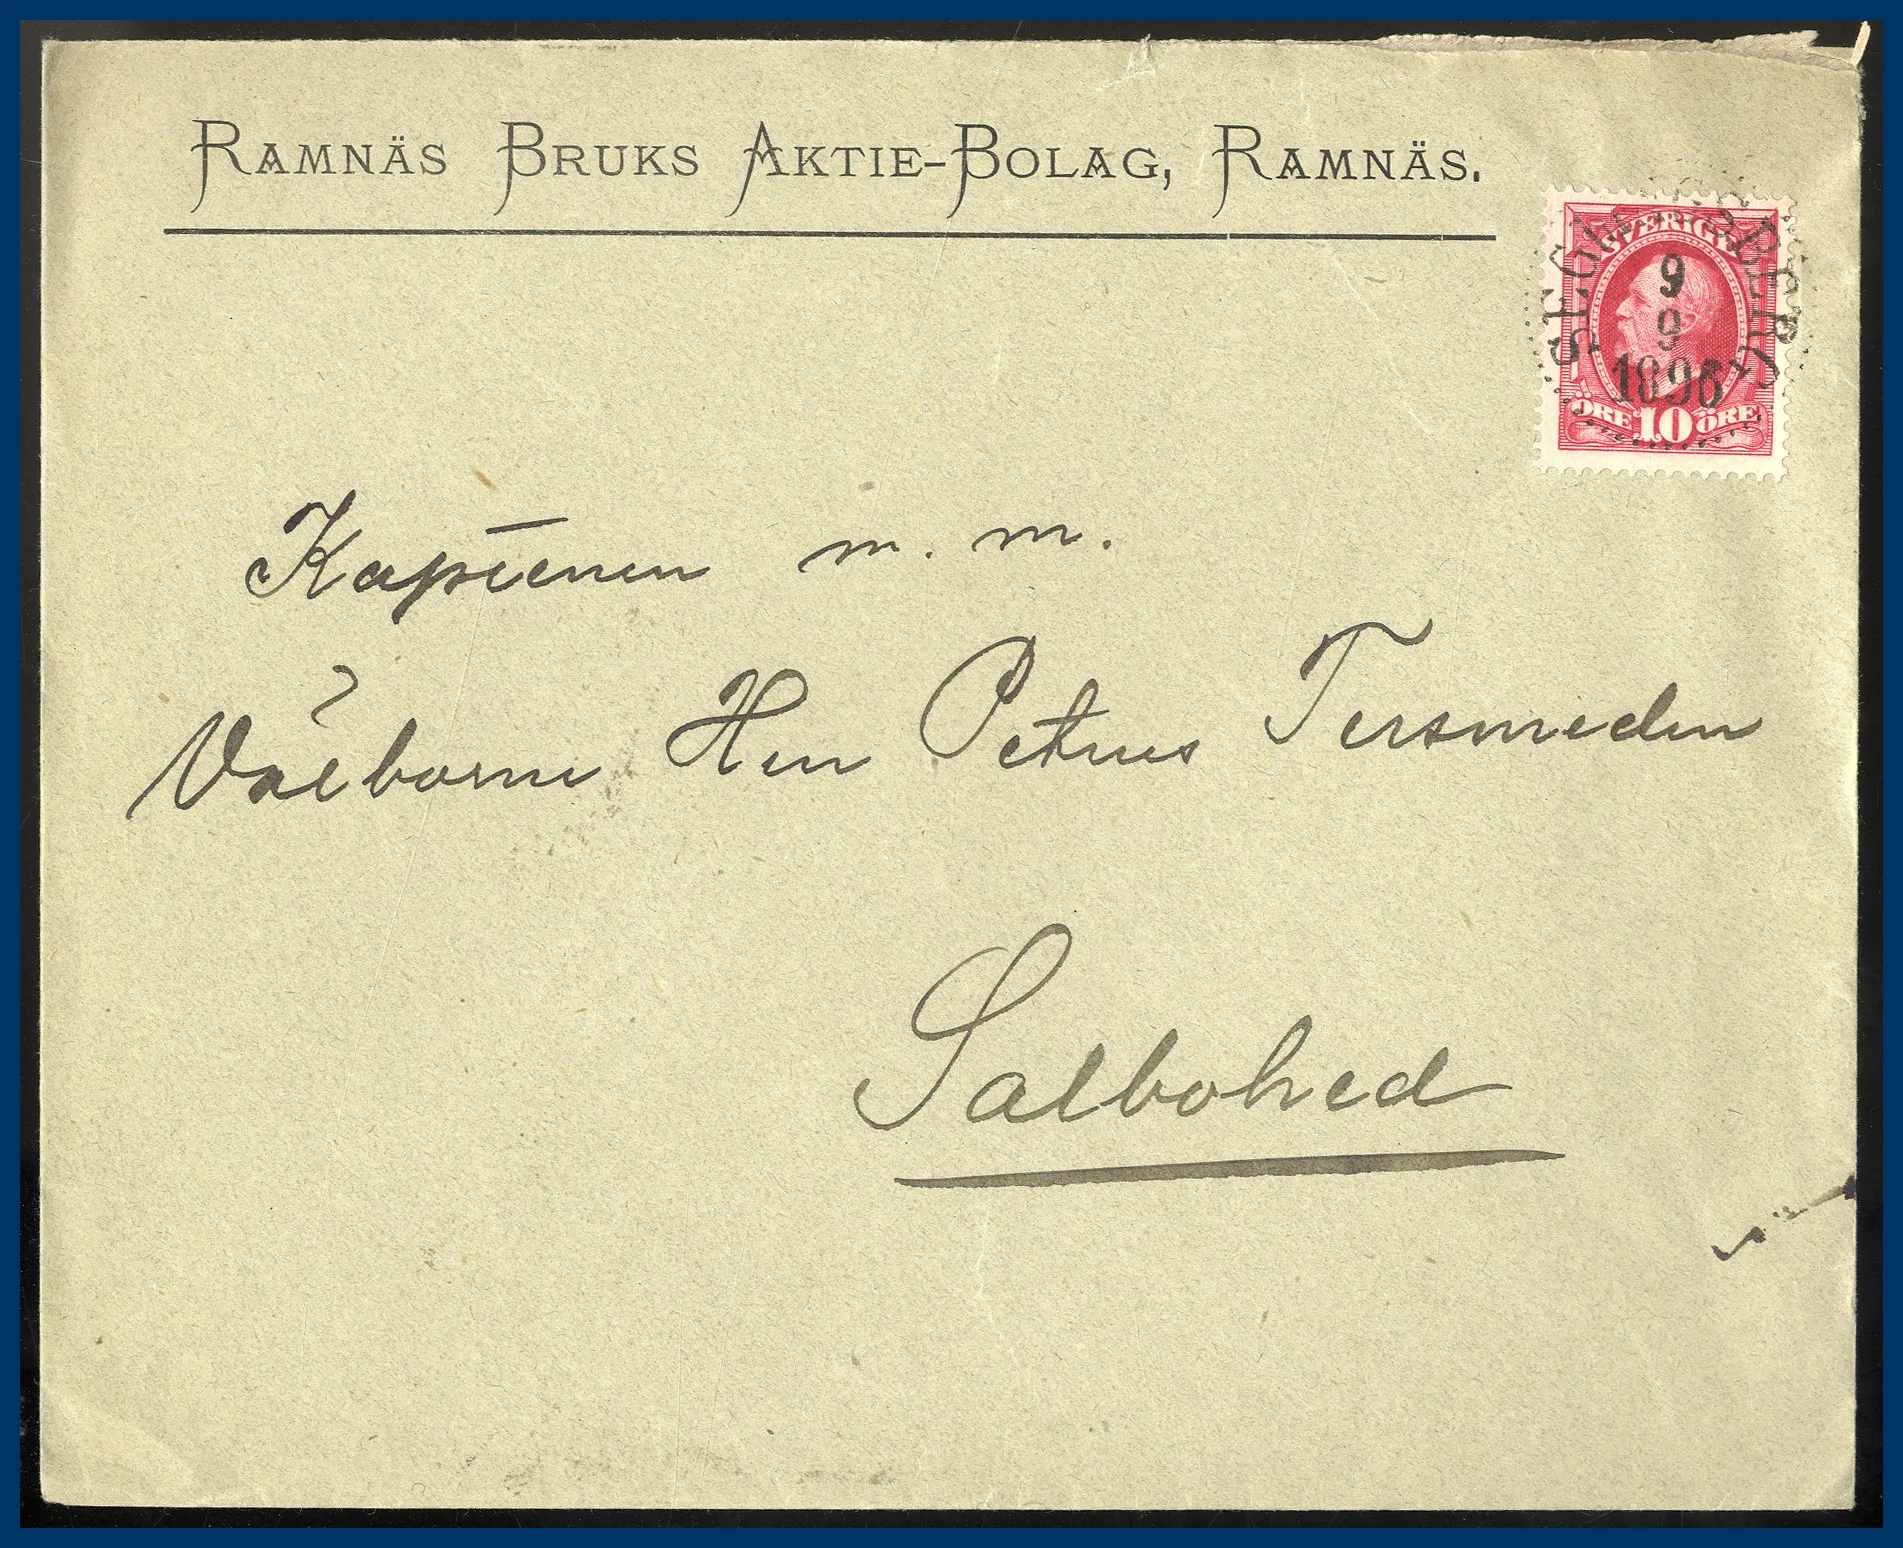 RAMNÄS BRUKS AKTIE-BOLAG, RAMNÄS.
SVERIGE
SEGLINGSBERG
9
9
1896
ÖRE 10 ÖRE
Kaptenen m. m.
Välborne Herr Petrus Tersmeden
Salbohed